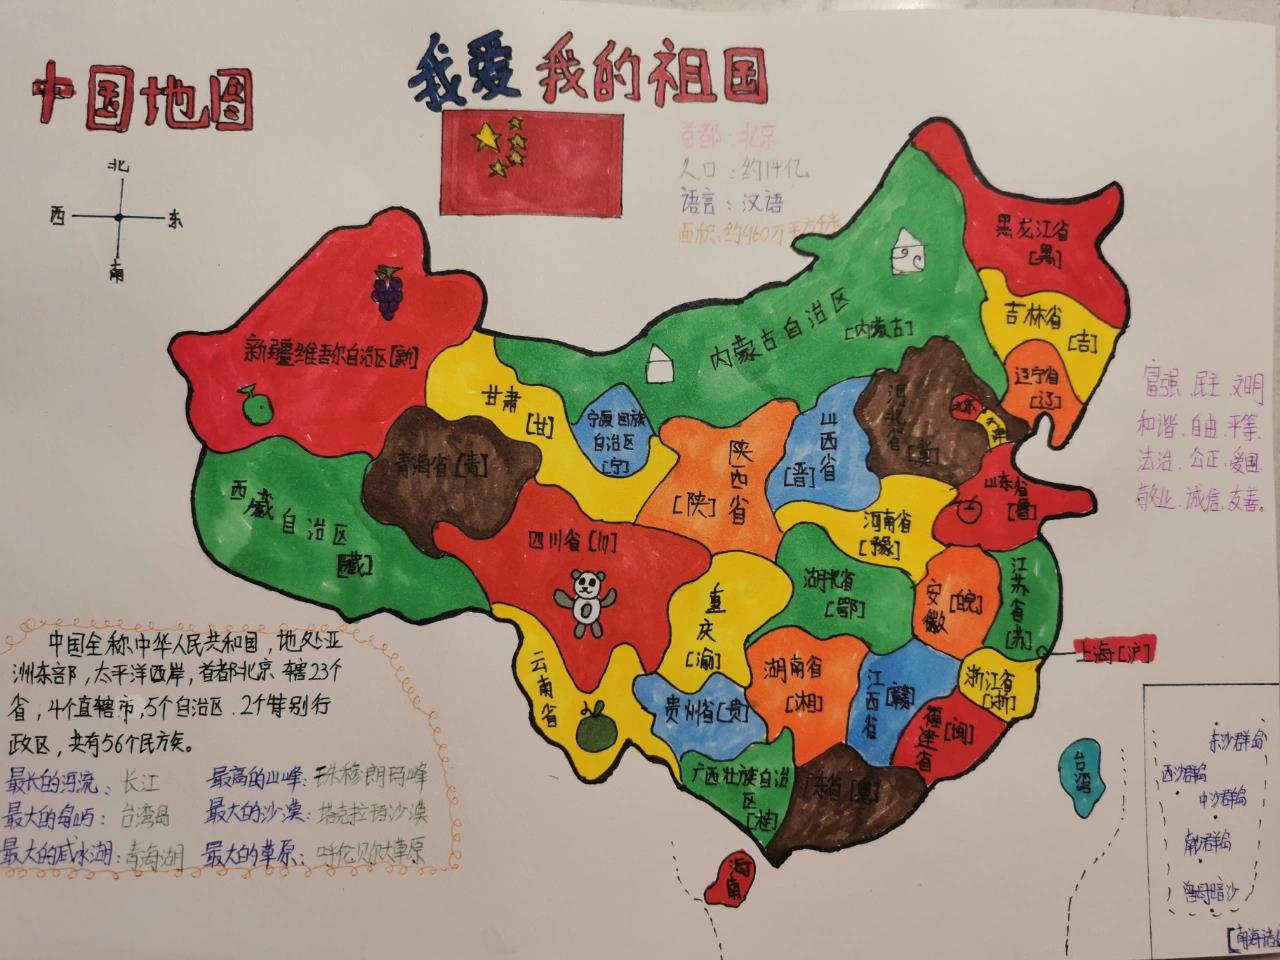 中国地图
我爱我的祖国
北
西
东
南
首都:北京
人口:约14亿
语言:汉语
面积:约960万平方千米
黑龙江省
[黑]
吉林省
[吉]
辽宁省
[辽]
内蒙古自治区
[内蒙古]
新疆维吾尔自治区[新]
甘肃
[甘]
宁夏回族
自治区
[宁]
青海省[青]
西藏自治区
[藏]
陕西省
[陕]
山西省
[晋]
河北省
[冀]
北京
天津
山东省
[鲁]
河南省
[豫]
四川省[川]
重庆
[渝]
湖北省
[鄂]
安徽
[皖]
江苏省
[苏]
上海[沪]
浙江省
[浙]
湖南省
[湘]
江西省
[赣]
福建省
[闽]
贵州省[贵]
云南省
广西壮族自治
区
[桂]
广东省[粤]
海南
台湾
富强、民主、文明
和谐、自由、平等、
法治、公正、爱国、
敬业、诚信、友善。
中国全称中华人民共和国,地处亚
洲东部,太平洋西岸,首都北京 辖23个
省,4个直辖市,5个自治区、2个特别行
政区,共有56个民族。
最长的河流:长江
最高的山峰:珠穆朗玛峰
最大的岛屿:台湾岛
最大的沙漠:塔克拉玛沙漠
最大的咸水湖:青海湖
最大的草原:呼伦贝尔大草原
东沙群岛
西沙群岛
中沙群岛
南沙群岛
曾母暗沙
[南海诸